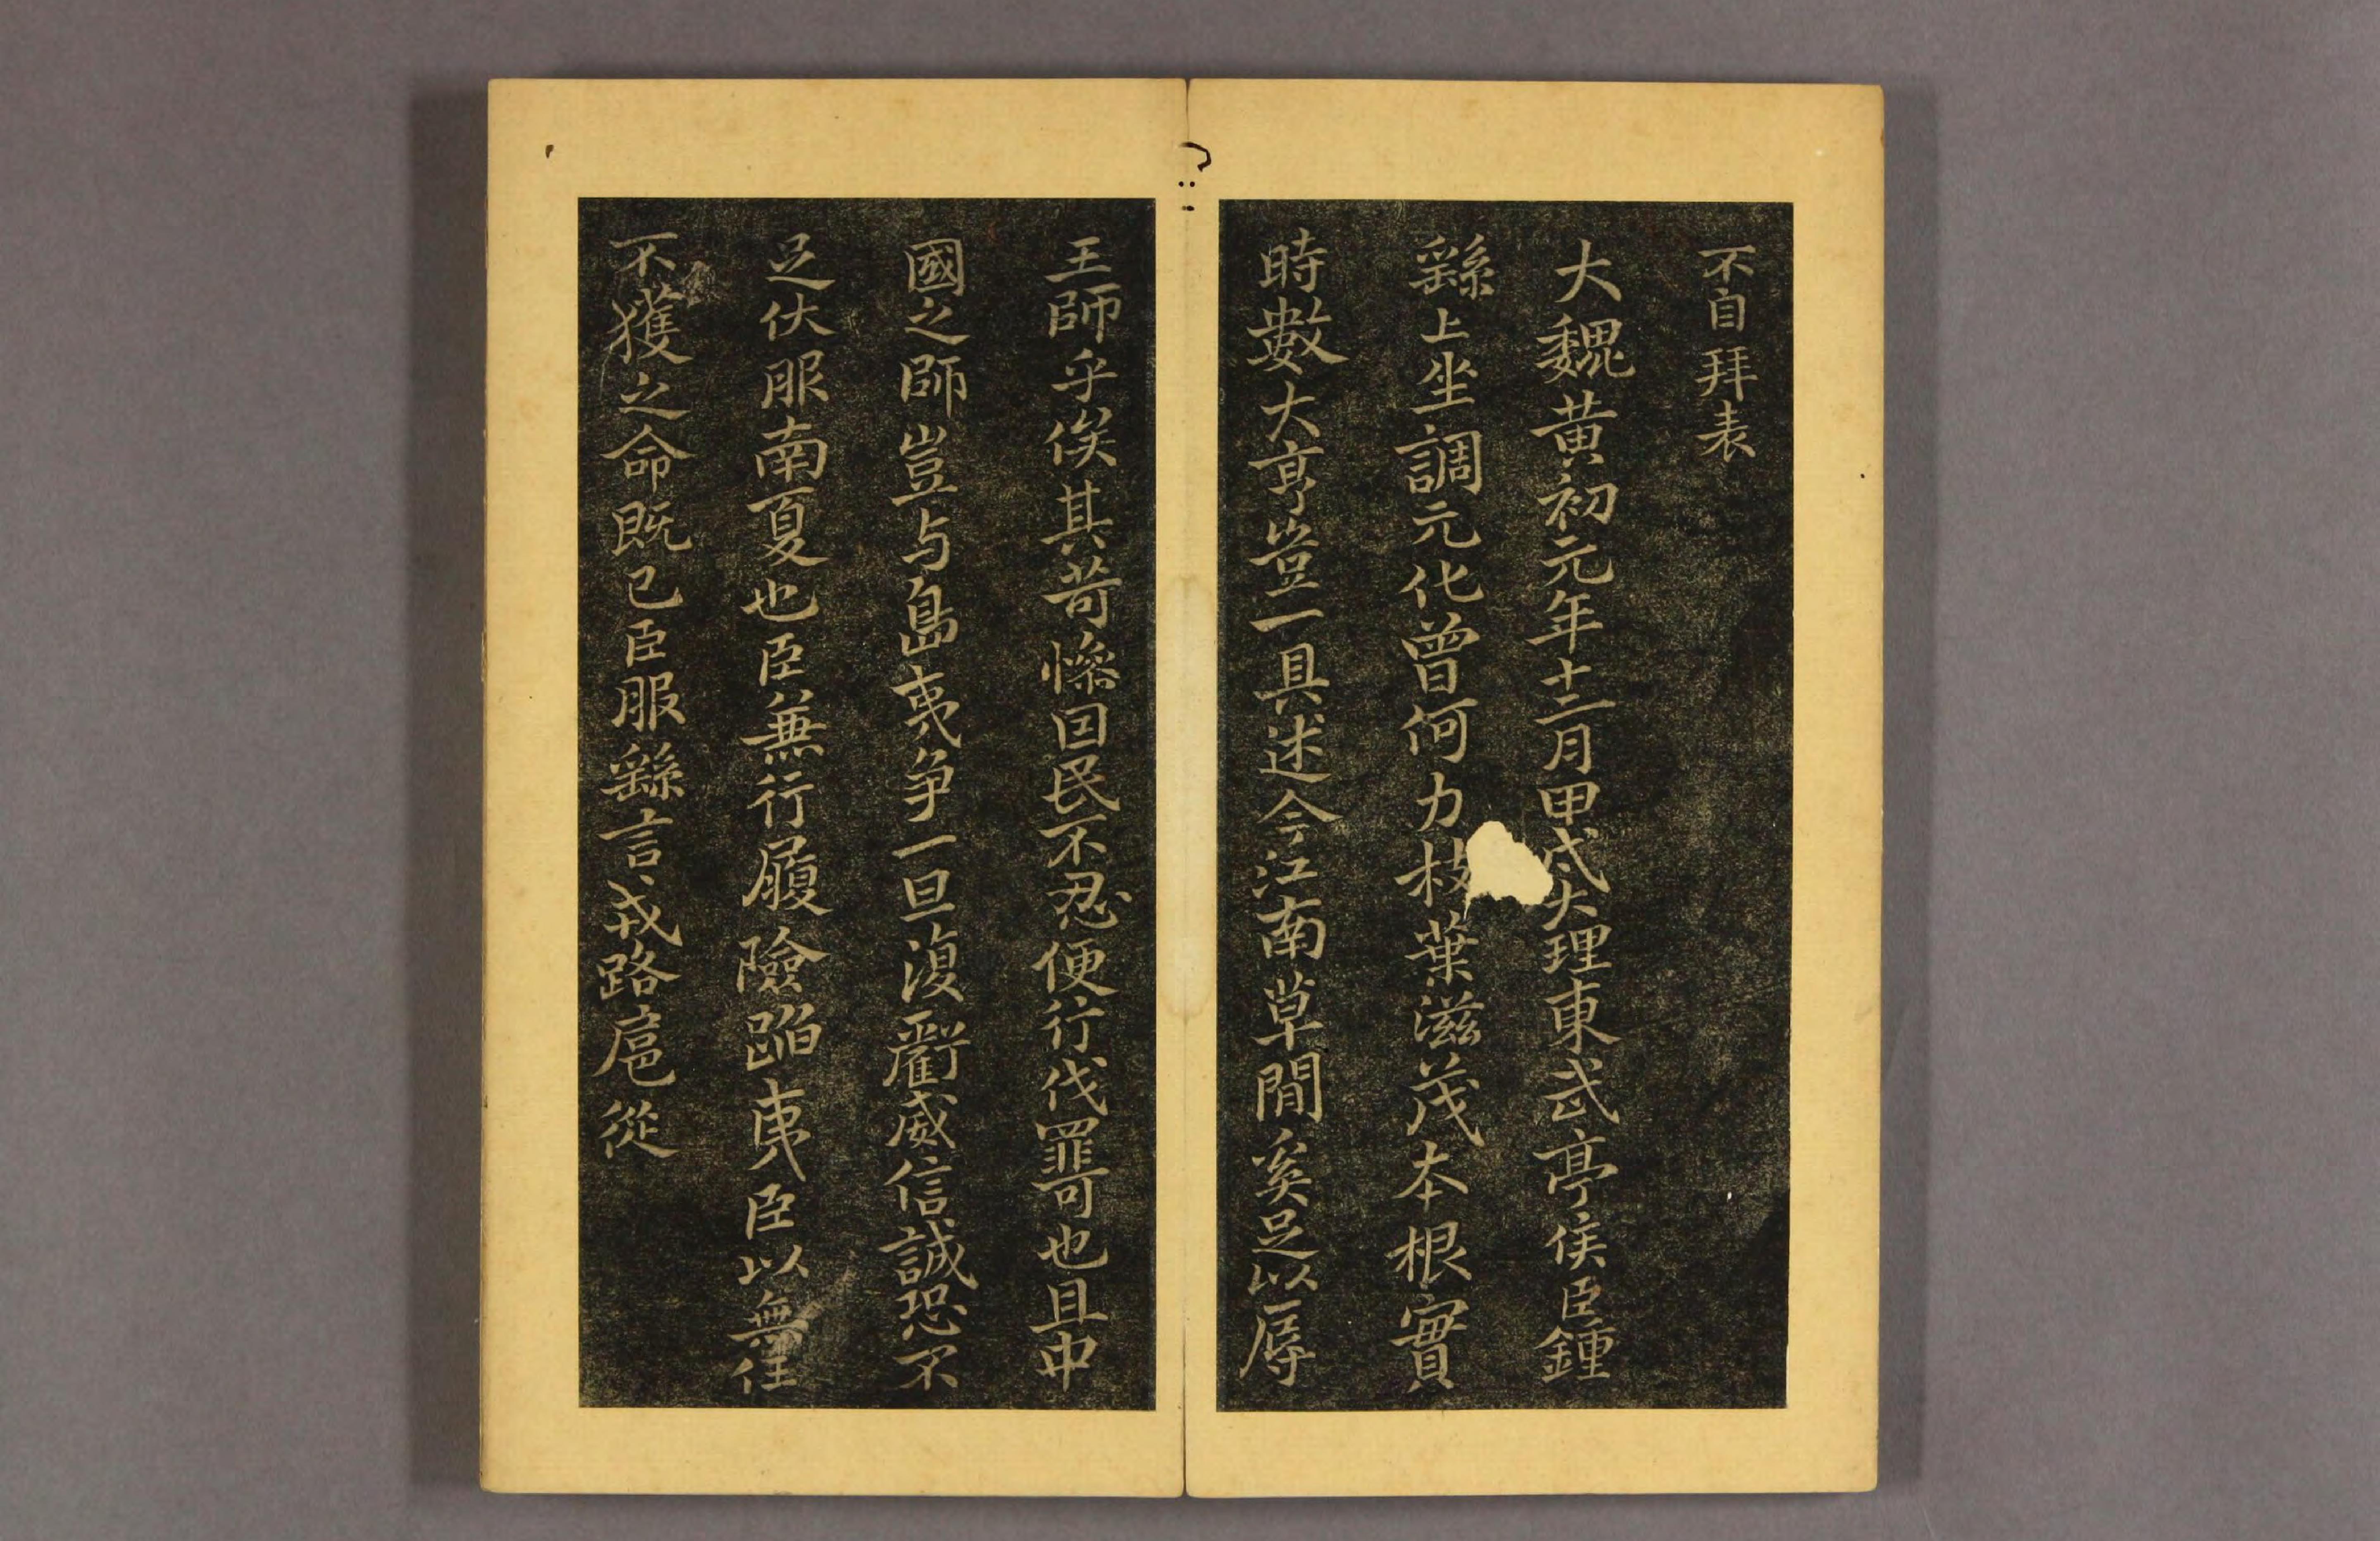 不自拜表
大魏黄初元年十二月甲戌大理東武亭侯臣鍾
繇上坐調元化曾何力枝葉滋茂本根實
時數大亨豈一具述今江南草間奚足以辱
王師乎俟其苛慘困民不忍便行伐罪可也且中
國之師豈与島夷争一旦復虧威信誠恐不
足伏服南夏也臣兼行履險蹈夷臣以無任
不獲之命既已臣服繇言戎路扈從